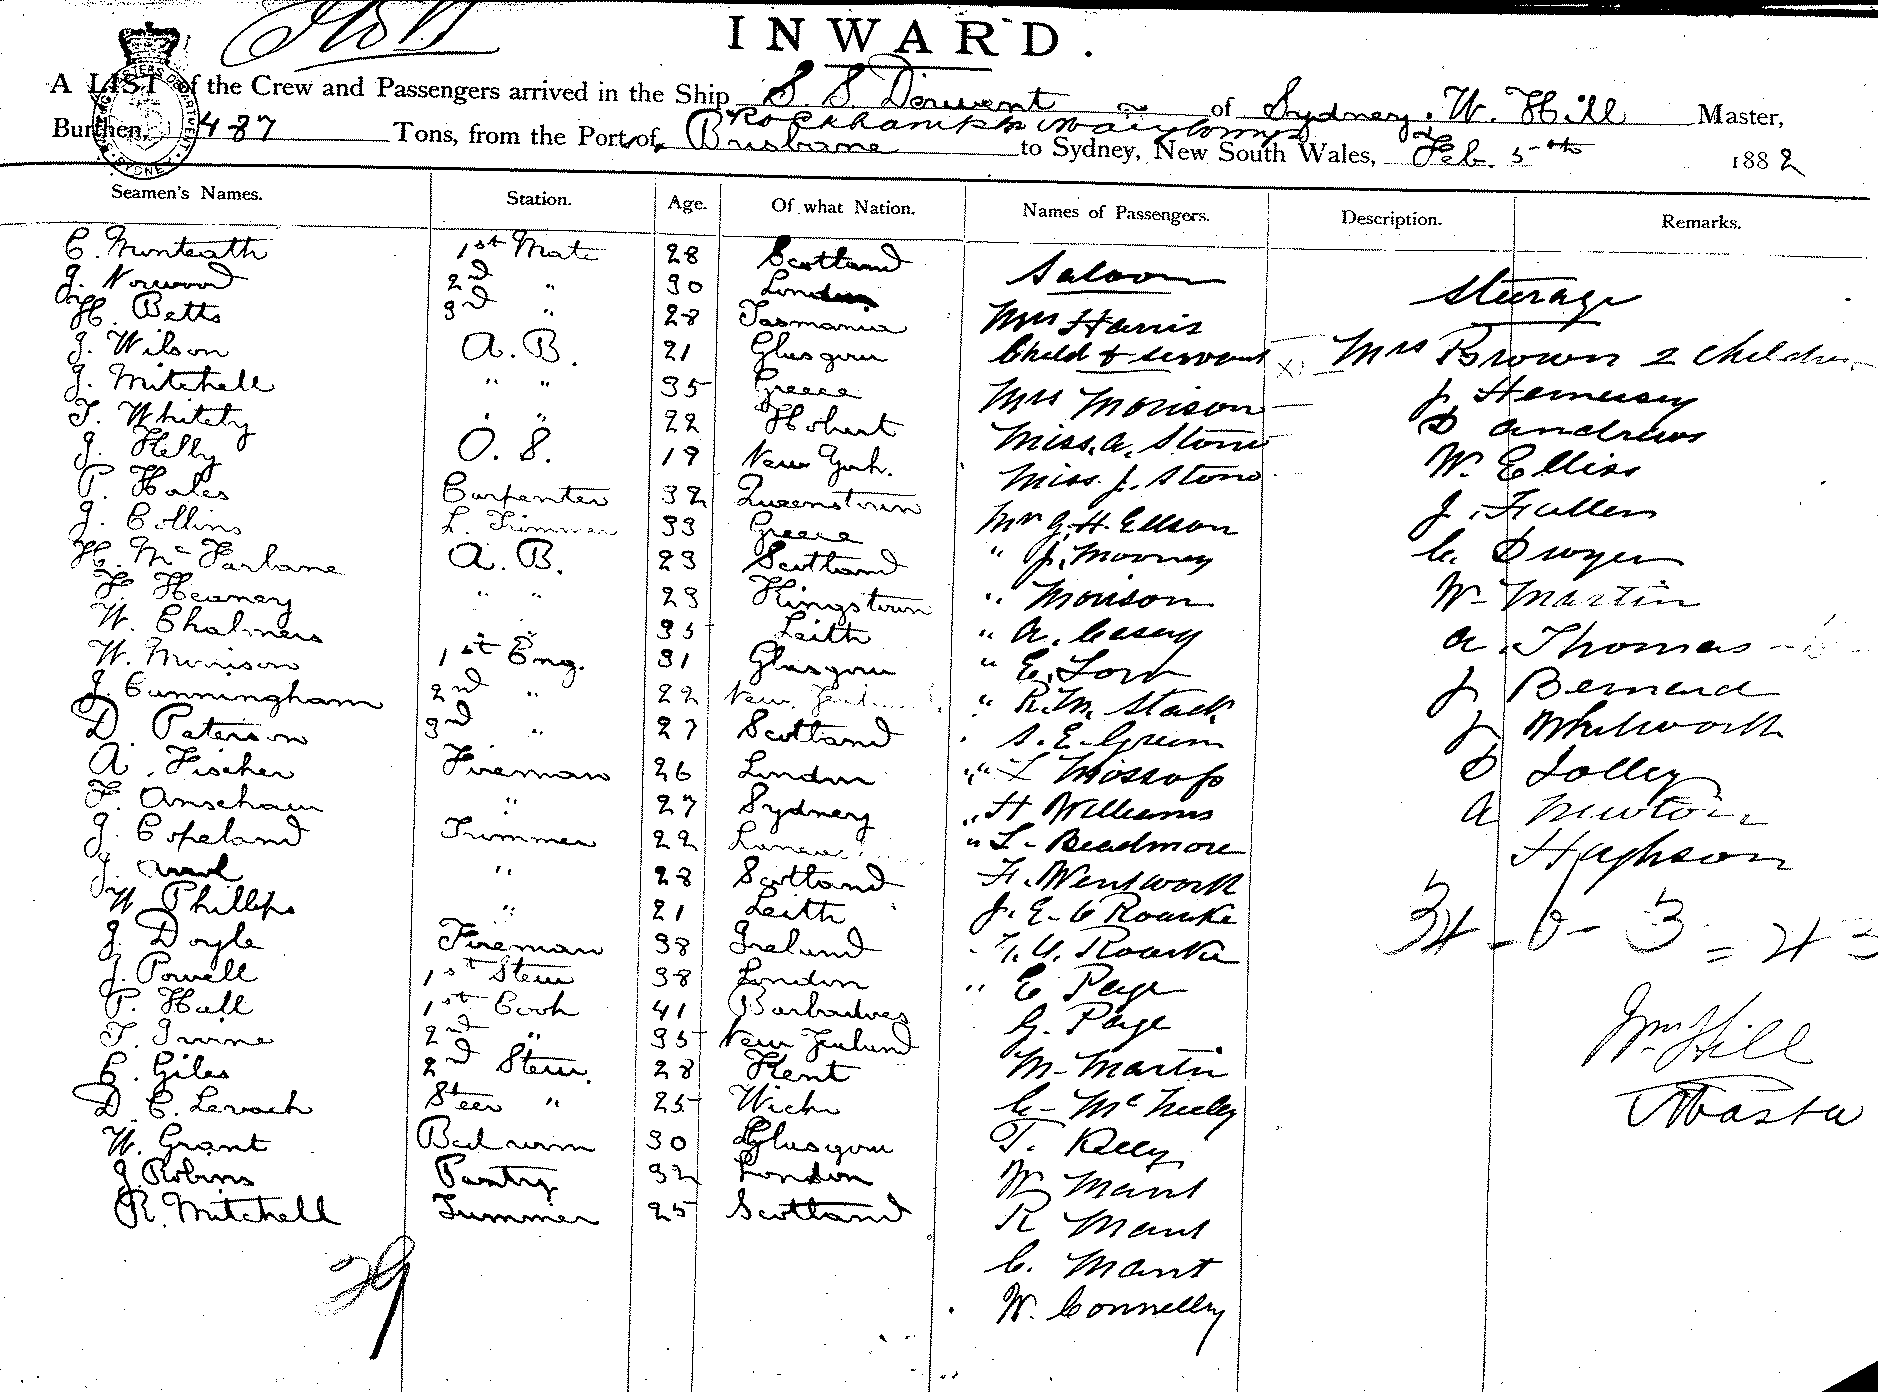 INWARD.
A LIST of the Crew and Passengers arrived in the Ship S S Derwent of Sydney. W. Hill Master,
Rockhampton
Burthen, 487 Tons, from the Port of Brisbane to Sydney, New South Wales, Feb. 5th 1882
Seamen's Names. Station. Age. Of what Nation. Names of Passengers. Description. Remarks.
C. Monteath 1st Mate 28 Scotland
Saloon Steerage
J. Norwood 2nd " 30 London
H. Betts 3rd " 28 Tasmania Mrs Harris
J. Wilson A. B. 21 Glasgow Child & servant Mrs Brown 2 Children
J. Mitchell " " 35 Greece Mrs Morison J Hennessey
T. Whitety " " 22 Hobart Miss. A. Stone D Andrews
J. Kelly O. S. 19 New York. Miss. J. Stone W. Elliss
P. Hales Carpenter 32 Queenstown
J. Collins L. Trimmer 33 Greece Mr G. H. Ellson J. Fullen
H. Mc Farlane A. B. 23 Scotland " J. Mooney C. Dwyer
F. Heaney " " 23 Kingstown " Morison W. Martin
W. Chalmers " " 35 Leith " A. Casey A. Thomas
W. Morrison 1st Eng. 31 Glasgow " E. Lorr J Bernard
J. Cunningham 2nd " 22 New " R. M. Stack J Whitworth
D. Paterson 3rd " 27 Scotland S. E. Green D Jolley
A. Fischer Fireman 26 London " T Mossop A Newton
F. Anscham " 27 Sydney " H Williams Hughson
J. Copeland Trimmer 22 " L. Beadmore
J. " 28 Scotland F. Wentworth
W Phillips " 21 Leith J. E. C Roarke 34 - 0 - 3 = 43
J. Doyle Fireman 38 Ireland Roarke
J. Powell 1st Stew 38 London " E Page
P. Hall 1st Cook 41 Barbadoes G. Page
T. Irvine 2nd " 35 New Zealand
C. Giles 2nd Stew. 28 Kent M. Martin Wm Hill
D. C. Levack Steer " 25 Wick C. Mc
W. Grant Bed room 30 Glasgow T. Kelly
J. Robins Pantry 32 London W Mant
R. Mitchell Trimmer 25 Scotland R Mant
C. Mant
W. Connelly
29